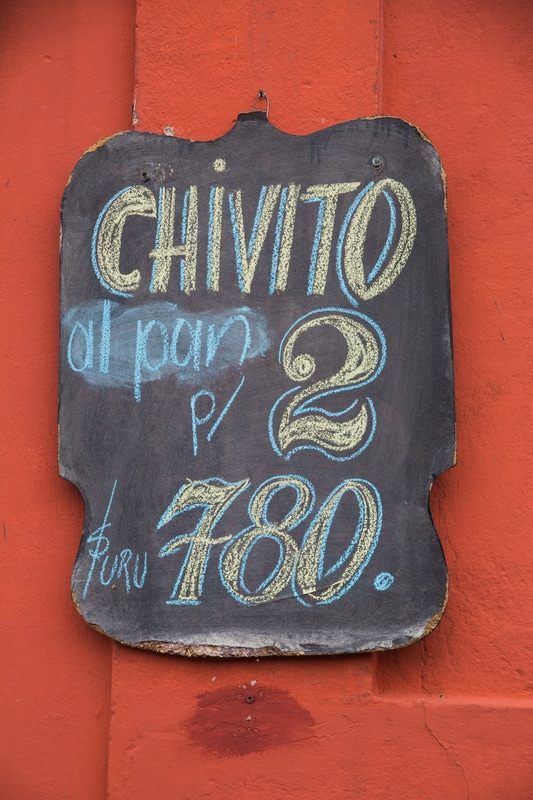 CHIVITO
al pan
p/ 2
$URU 780.